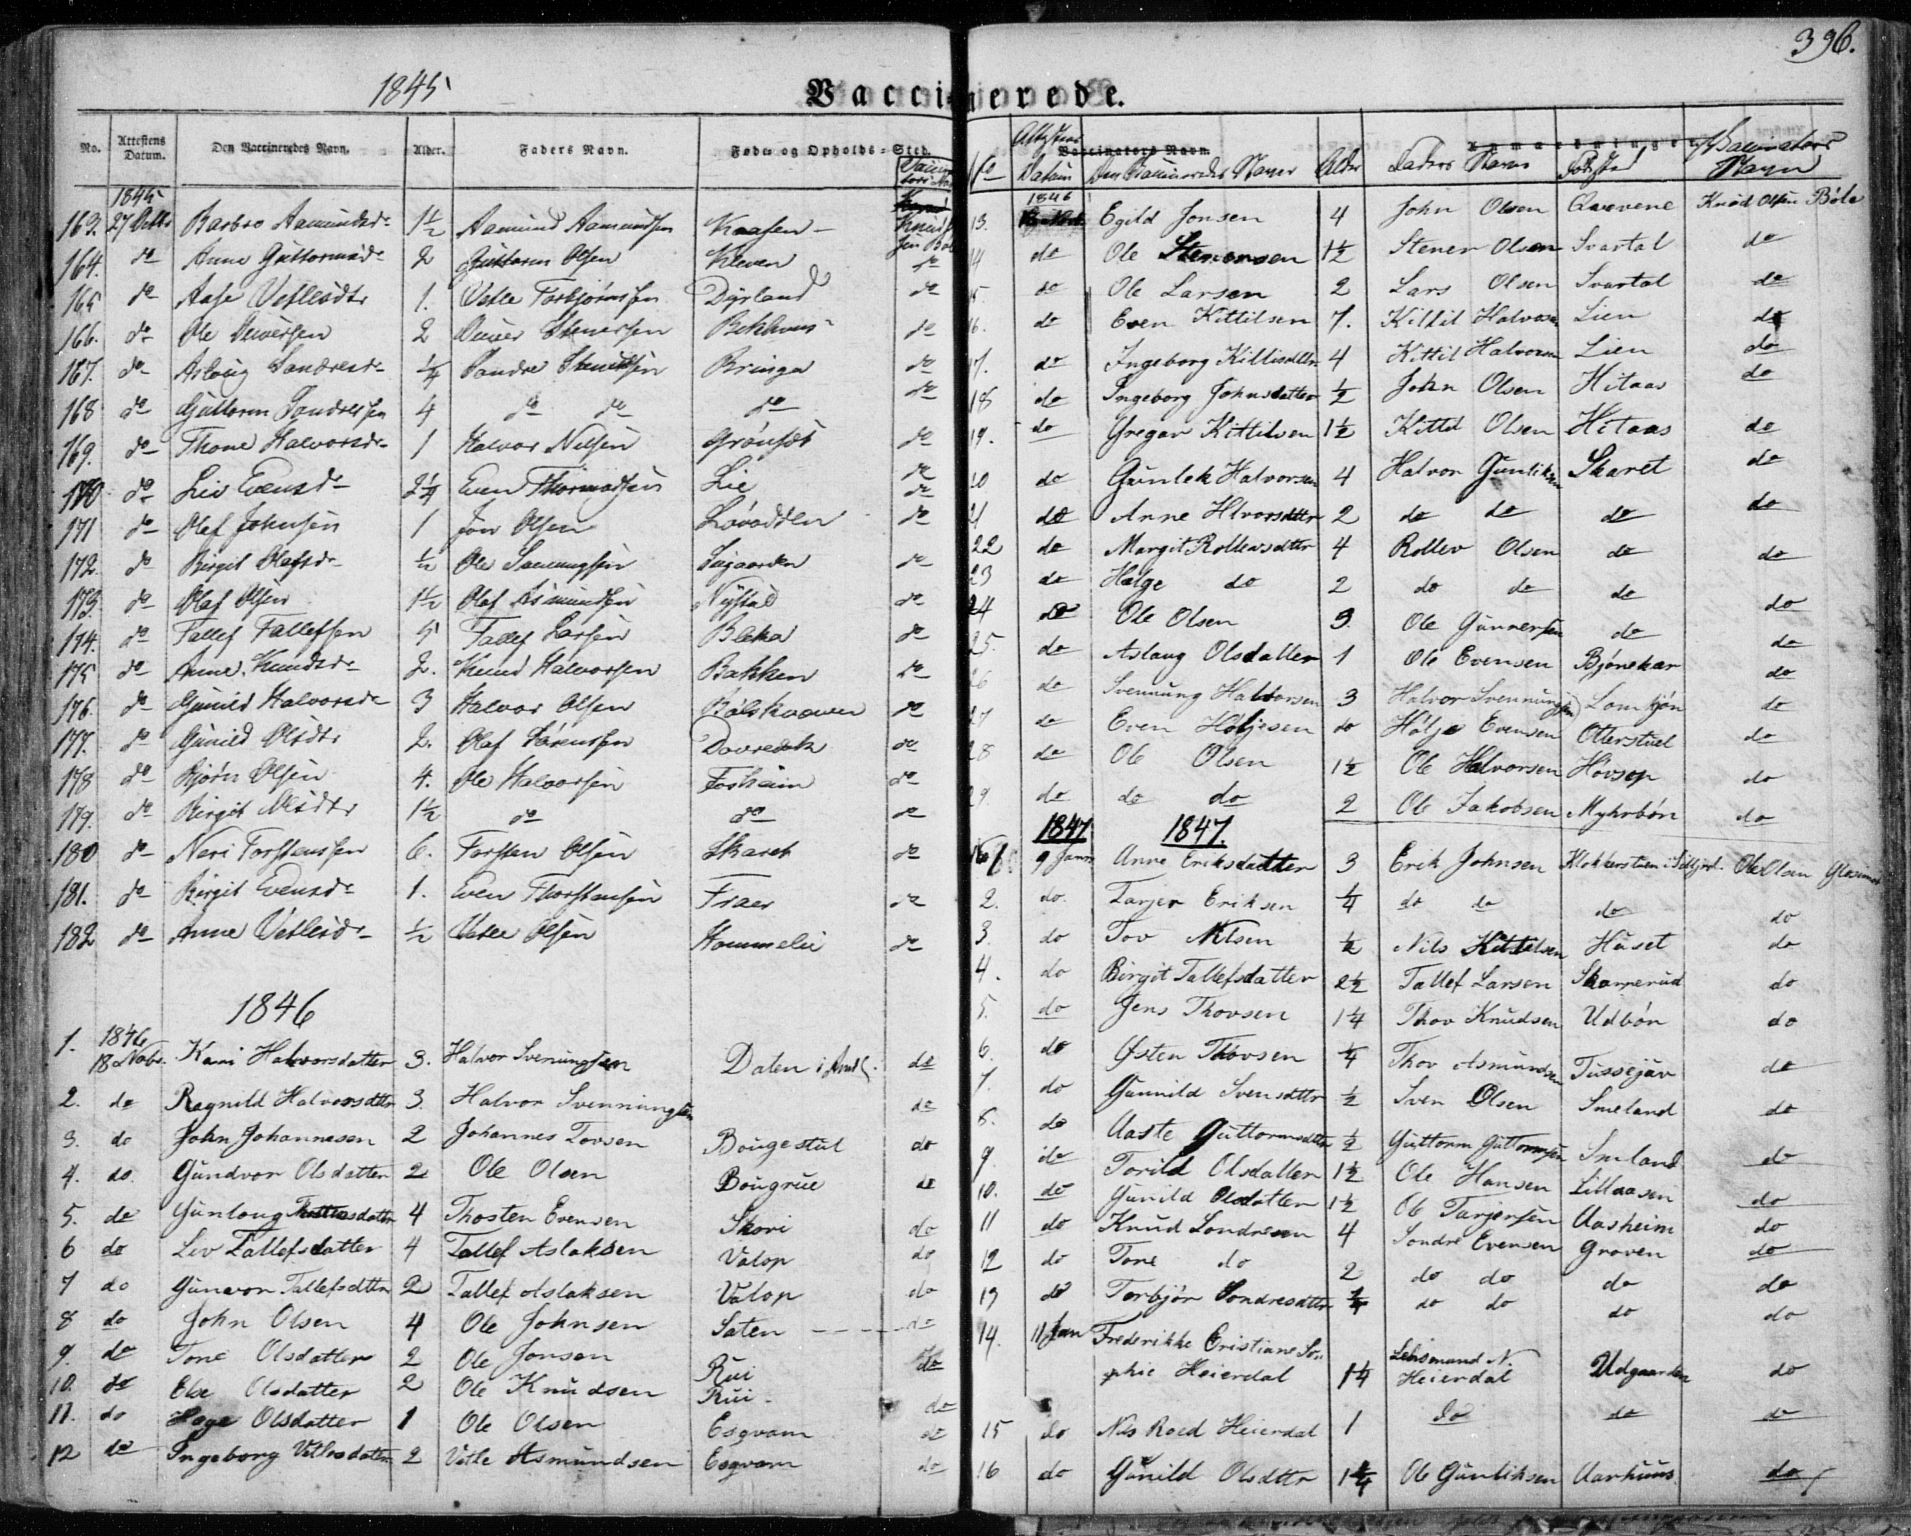 396.
1845
Vaccinerede.
No. Attestens Datum. Den Vaccineredes Navn. Alder. Faders Navn. Føde- og Opholds-Sted.
1845
163. 27 Octbr Barbro Aamundsdr 1½ Aamund Aamundsen Kaasen
164. do Anne Guttormsdr 2 Guttorm Olsen Kleven do
165 do Aase Vetlesdtr 1. Vetle Torbjørnsen Dyrland do
166. do Ole 2 Bekhuus do
167. do Aslaug Sandresdr ¼ Sandre Bringa do
168 do Guttorm Sandresen 4 do do do do
169. do Thone Halvorsdr 1 Halvor Nilsen Grønset do
170. do Liv Evensdr 2¼ Even Thormodsen Lie do
171 do Olaf Johnsen 1 Jon Olsen Løvodden do
172 do Birgit Olafsdr ½ Ole Sveinungsen Søgaarden do
173. do Olaf Olsen 1½ Olaf Asmundsen Nystad do
174. do Tallef Tallefsen 5 Tallef Larsen Bleka do
175 do Anne Knudsdr 2. Knud Halvorsen Bakken do
176. do Gunild Halvorsdr 3 Halvor Olsen do
177. do Gunild Olsdtr 2. Olaf Sørensen do
178 do Bjørn Olsen 4. Ole Halvorsen Fosheim do
179. do Birgit Olsdtr 1½ do do do
180 do Neri Torstensen 6. Torsten Olsen Skaret do
181. do Birgit Evensdr 1. Even Thorstensen Fraer do
182 do Anne Vetlesdr ½ Vetle Olsen Hommelie do
1846
1. 1846 18 Novbr. Kari Halvorsdatter 3. Halvor Svenungsen Daten i do
2. do Ragnild Halvorsdttr 3. Halvor Svenningsen do
3. do John Johannesen 2 Johannes Tovsen Bougestul do
4. do. Gundvor Olsdatter 2 Ole Olsen Bougrue do
5. do Gunloug datter 4 Thosten Evensen Skori do
6 do Liv Tallefsdatter 4 Tallef Aslaksen Valop do
7 do Gunvor Tallefsdttr 2 Tallef Aslaksen Valop do
8 do John Olsen 4 Ole Johnsen Saten do
9. do Tone Olsdatter 2 Ole Jonsen Rui do
10. do Else Olsdatter 2 Ole Knudsen Rui do
11. do Hage Olsdatter 1 Ole Olsen Esgvam do
12 do Ingeborg Vetlesdatter 2 Vetle Asmundsen Esgvam do
No Attestens Datum Den Vaccineredes Navn Alder Faders Navn Fødested Vaccinators Navn
1846
13. Egild Jonsen 4 John Olsen Qvævene Knud Olsen Bøle
14 do Ole Stenersen 1½ Stener Olsen Svartal do
15 do Ole Larsen 2 Lars Olsen Svartal do
16. do Even Kittilsen 7. Kittil Halvorsen Lien do
17. do Ingeborg Kittilsdttr 4 Kittil Halvorsen Lien do
18 do Ingeborg Johnsdatter ½ John Olsen Hitaas do
19. do Gregar Kittilsen 1½ Kittil Olsen Hitaas do
20 do Gunlek Halvorsen 4 Halvor Gunliksen Skaret do
21 do Anne Hlvorsdttr 2 do do do do
22 do Margit Rollevsdttr 4 Rollev Olsen do do
23 do Hølge do 2 do do do
24 do Ole Olsen 3 Ole Gunnersen do do
25. do Aslaug Olsdatter 1 Ole Evensen Bjønekær do
26 do Svennung Halvorsen 3 Halvor Svennungsen Lomtjøn do
27 do Even Høljesen do Hølje Evensen Otterstuel do
28 do Ole Olsen 1½ Ole Halvorsen Hovsop do
29. do do do 2 Ole Jakobsen Myhrbøn do
1847 1847.
No 1 9 Janr Anne Eriksdatter 3 Erik Johnsen Klokkerstuen i Silljord. Ole Olsen
2. do. Tarjer Eriksen ¼ do do do do
3. do Tov Nilsen ½ Nils Kittelsen Huset do
4. do Birgit Tallefsdatter 2½ Tallef Larsen Skarperud do
5. do Jens Thovsen 1¼ Thov Knudsen Udbøn do
6. do Østen Thovsen ¼ Thov Asmundsen Tussejuv do
7. do Gunnild Svensdttr ½ Sven Olsen Smeland do
8. do Aaste Guttormsdttr ½ Guttorm Guttormsen Smland do
9 do Torild Olsdatter 1½ Ole Hansen Lillaasen do
10. do Gunild Olsdatter 1½ Ole Tarjersen Aasheim do
11 do Knud Sondresen 4 Sondre Evensen Groven do
12 do Tone do 2 do do do do
13 do Torbjør Sondresdttr ¼ do do do do
14. 11 Jan Frederikke Cristiane So-
phie Heierdal 1¼ Lehnsmand N. Heierdal Udgaarden do
15 do Nils Roed Heierdal 1 do do do
16 do Gunild Olsdttr 1¼ Ole Gunliksen Aarhuus do